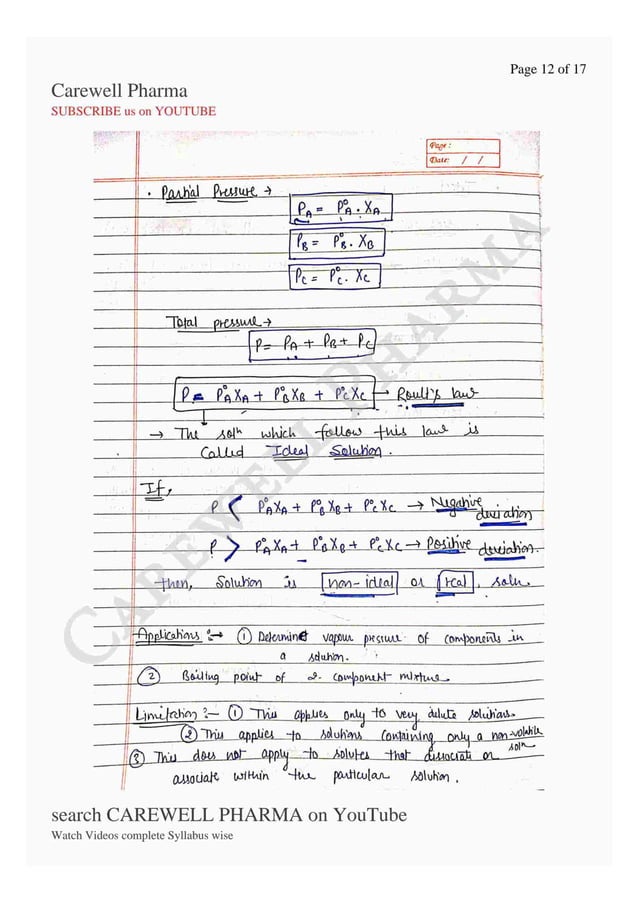 Page 12 of 17
Carewell Pharma
SUBSCRIBE us on YOUTUBE
Page :
Date: / /
• Partial Pressure →
P_A = P°_A . X_A
P_B = P°_B . X_B
P_C = P°_C . X_C
Total pressure →
P = P_A + P_B + P_C
P = P°_A X_A + P°_B X_B + P°_C X_C → Roult's law
→ The solⁿ which follow this law is
called Ideal Solution.
If,
P < P°_A X_A + P°_B X_B + P°_C X_C → Negative deviation
P > P°_A X_A + P°_B X_B + P°_C X_C → Positive deviation.
then, Solution is non-ideal or real soln.
Applications :→ ① Determine vapour pressure of components in
a solution.
② Boiling point of 2. component mixture.
Limitation :- ① This applies only to very dilute solutions.
② This applies to solutions containing only a non-volatile
solⁿ
③ This does not apply to solutes that dissociate or
associate within the particular solution.
CAREWELL PHARMA
search CAREWELL PHARMA on YouTube
Watch Videos complete Syllabus wise